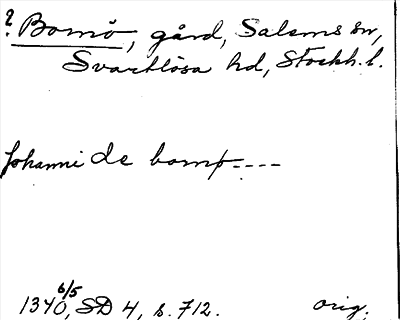 ? Bornö, gård, Salems sn,
Svartlösa hd, Stockh. l.
Johanni de bornp----
1340 6/5, SD 4, s. 712. orig.